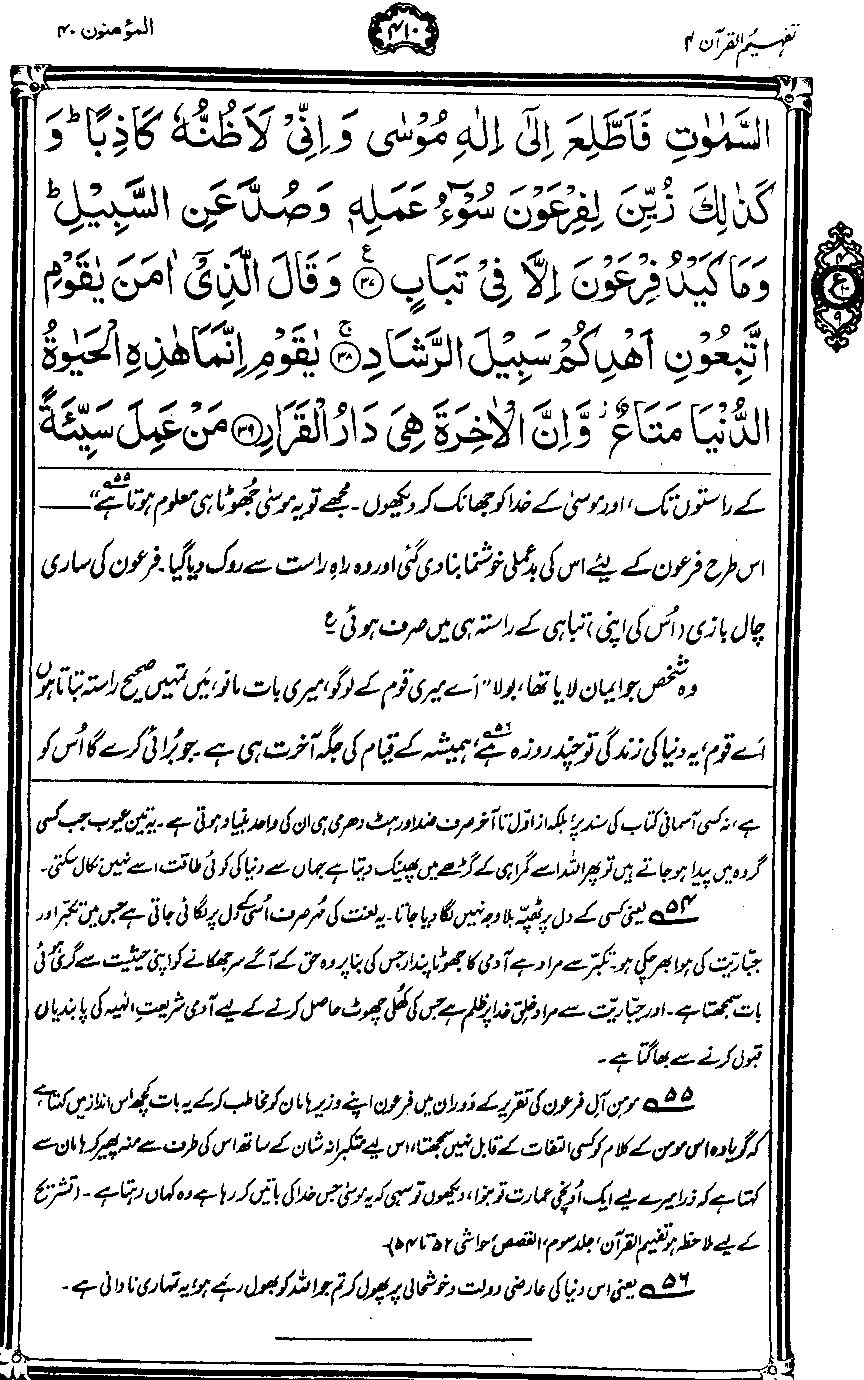 تفہیم القرآن ۴
۴۱۰
المؤمنون ۴۰
السَّمٰوٰتِ فَاَطَّلِعَ اِلٰٓى اِلٰهِ مُوْسٰى وَاِنِّیْ لَاَظُنُّهٗ كَاذِبًا ؕ وَ
كَذٰلِكَ زُیِّنَ لِفِرْعَوْنَ سُوْٓءُ عَمَلِهٖ وَصُدَّ عَنِ السَّبِیْلِ ؕ
وَمَا كَیْدُ فِرْعَوْنَ اِلَّا فِیْ تَبَابٍ ﴿۳۷﴾ ع وَقَالَ الَّذِیْٓ اٰمَنَ یٰقَوْمِ
۴ ع ۱۰ ۹
اتَّبِعُوْنِ اَهْدِكُمْ سَبِیْلَ الرَّشَادِ ﴿۳۸﴾ ج یٰقَوْمِ اِنَّمَا هٰذِهِ الْحَیٰوةُ
الدُّنْیَا مَتَاعٌ ز وَّاِنَّ الْاٰخِرَةَ هِیَ دَارُ الْقَرَارِ ﴿۳۹﴾ مَنْ عَمِلَ سَیِّئَةً
کے راستوں تک، اور موسیٰ کے خدا کو جھانک کر دیکھوں۔ مجھے تو یہ موسیٰ جھوٹا ہی معلوم ہوتا ہے۵۵“ ـــــــ
اس طرح فرعون کے لیئے اس کی بدعملی خوشنما بنا دی گئی اور وہ راہِ راست سے روک دیا گیا۔ فرعون کی ساری
چال بازی (اُس کی اپنی) تباہی کے راستہ ہی میں صرف ہوئی ع
وہ شخص جو ایمان لایا تھا، بولا ”اَے میری قوم کے لوگو، میری بات مانو، میں تمہیں صحیح راستہ بتاتا ہوں
اَے قوم، یہ دنیا کی زندگی تو چند روزہ ہے۵۶، ہمیشہ کے قیام کی جگہ آخرت ہی ہے۔ جو بُرائی کرے گا اُس کو
ہے، نہ کسی آسمانی کتاب کی سند پر، بلکہ از اوّل تا آخر صرف ضد اور ہٹ دھرمی ہی ان کی واحد بنیاد ہوتی ہے۔ یہ تین عیوب جب کسی
گروہ میں پیدا ہو جاتے ہیں تو پھر اللہ اسے گمراہی کے گڑھے میں پھینک دیتا ہے جہاں سے دنیا کی کوئی طاقت اسے نہیں نکال سکتی۔
۵۴ یعنی کسی کے دل پر ٹھپّہ بلا وجہ نہیں لگا دیا جاتا۔ یہ لعنت کی مُہر صرف اُسی کے دل پر لگائی جاتی ہے جس میں تکبّر اور
جبّاریّت کی ہوا بھر چکی ہو۔ تکبّر سے مراد ہے آدمی کا جھوٹا پندار جس کی بنا پر وہ حق کے آگے سر جھکانے کو اپنی حیثیت سے گری ہوئی
بات سمجھتا ہے۔ اور جبّاریّت سے مراد خلقِ خدا پر ظلم ہے جس کی کُھلی چھوٹ حاصل کرنے کے لیے آدمی شریعتِ الٰہیہ کی پابندیاں
قبول کرنے سے بھاگتا ہے۔
۵۵ مومن آلِ فرعون کی تقریر کے دَوران میں فرعون اپنے وزیر ہامان کو مخاطب کرکے یہ بات کچھ اس انداز میں کہتا ہے
کہ گویا وہ اس مومن کے کلام کو کسی التفات کے قابل نہیں سمجھتا، اس لیے متکبرانہ شان کے ساتھ اس کی طرف سے منہ پھیر کر ہامان سے
کہتا ہے کہ ذرا میرے لیے ایک اُونچی عمارت تو بنوا، دیکھوں تو سہی کہ یہ موسیٰ جس خدا کی باتیں کر رہا ہے وہ کہاں رہتا ہے۔ (تشریح
کے لیے ملاحظہ ہو تفہیم القرآن، جلد سوم، القصص، حواشی ۵۲ تا ۵۴)۔
۵۶ یعنی اس دنیا کی عارضی دولت و خوشحالی پر پھول کر تم جو اللہ کو بھول رہے ہو، یہ تمہاری نادانی ہے۔